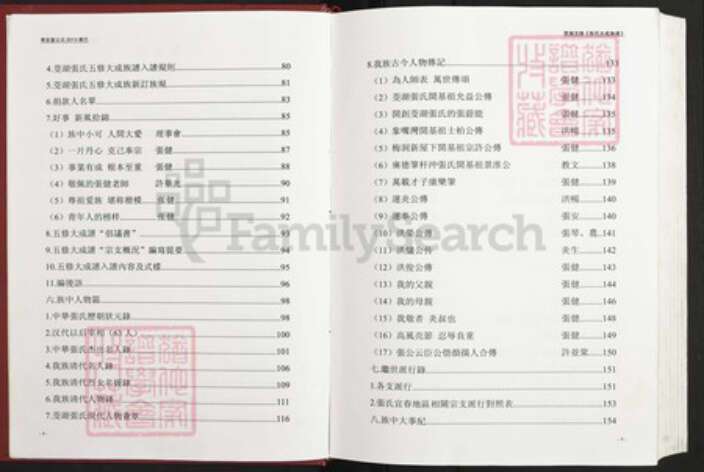 4.茭湖張氏五修大成族譜入譜規則 80
5.茭湖張氏五修大成族新訂族規 81
6.捐款人名單 83
7.好事 新風拾錦 85
(1)族中小可 人間大愛 理事會 85
(2)一片丹心 克己奉宗 張健 87
(3)事業有成 根本至重 張健 88
(4)敬佩的張健老師 許華光 90
(5)尊祖愛族 堪称楷模 張健 91
(6)青年人的榜样 張健 92
8.五修大成譜“倡議書” 93
9.五修大成譜“宗支概況”編寫提要 94
10.五修大成譜入譜內容及式樣 95
11.編後語 96
六.族中人物篇 98
1.中華張氏歷朝狀元錄 98
2.汉代以后宰相(63人) 100
3.中華張氏杰出名人錄 101
4.我族清代名人錄 106
5.我族清代烈女名媛錄 109
6.我族清代人物錄 111
7.茭湖張氏現代人物薈萃 116
8.我族古今人物傳記 133
(1)為人師表 萬世傳頌 張健 133
(2)茭湖張氏開基祖允益公傳 張健 134
(3)開創茭湖張氏的張爵龍 張健 135
(4)象嘴灣開基祖士柏公傳 洪暢 135
(5)梅洞新屋下開基祖宗許公傳 張健 136
(6)廣德筆杆沖張氏開基祖景淮公 教文 138
(7)萬載才子康樂筆 張健 139
(8)運炎公傳 洪暢 140
(9)運泰公傳 張安 140
(10)洪榮公傳 張琴、農 141
(11)洪儲公傳 美生 142
(12)洪俊公傳 張健 143
(13)我的父親 張健 144
(14)我的母親 張健 146
(15)我敬者 美叔也 張健 148
(16)高風亮節 忍辱負重 張健 149
(17)張公云臣公偕顏孺人合傳 許並棠 150
七.繼世派行錄 151
1.各支派行 151
2.張氏宜春地區相關宗支派行對照表 153
八.族中大事紀 154
FamilySearch